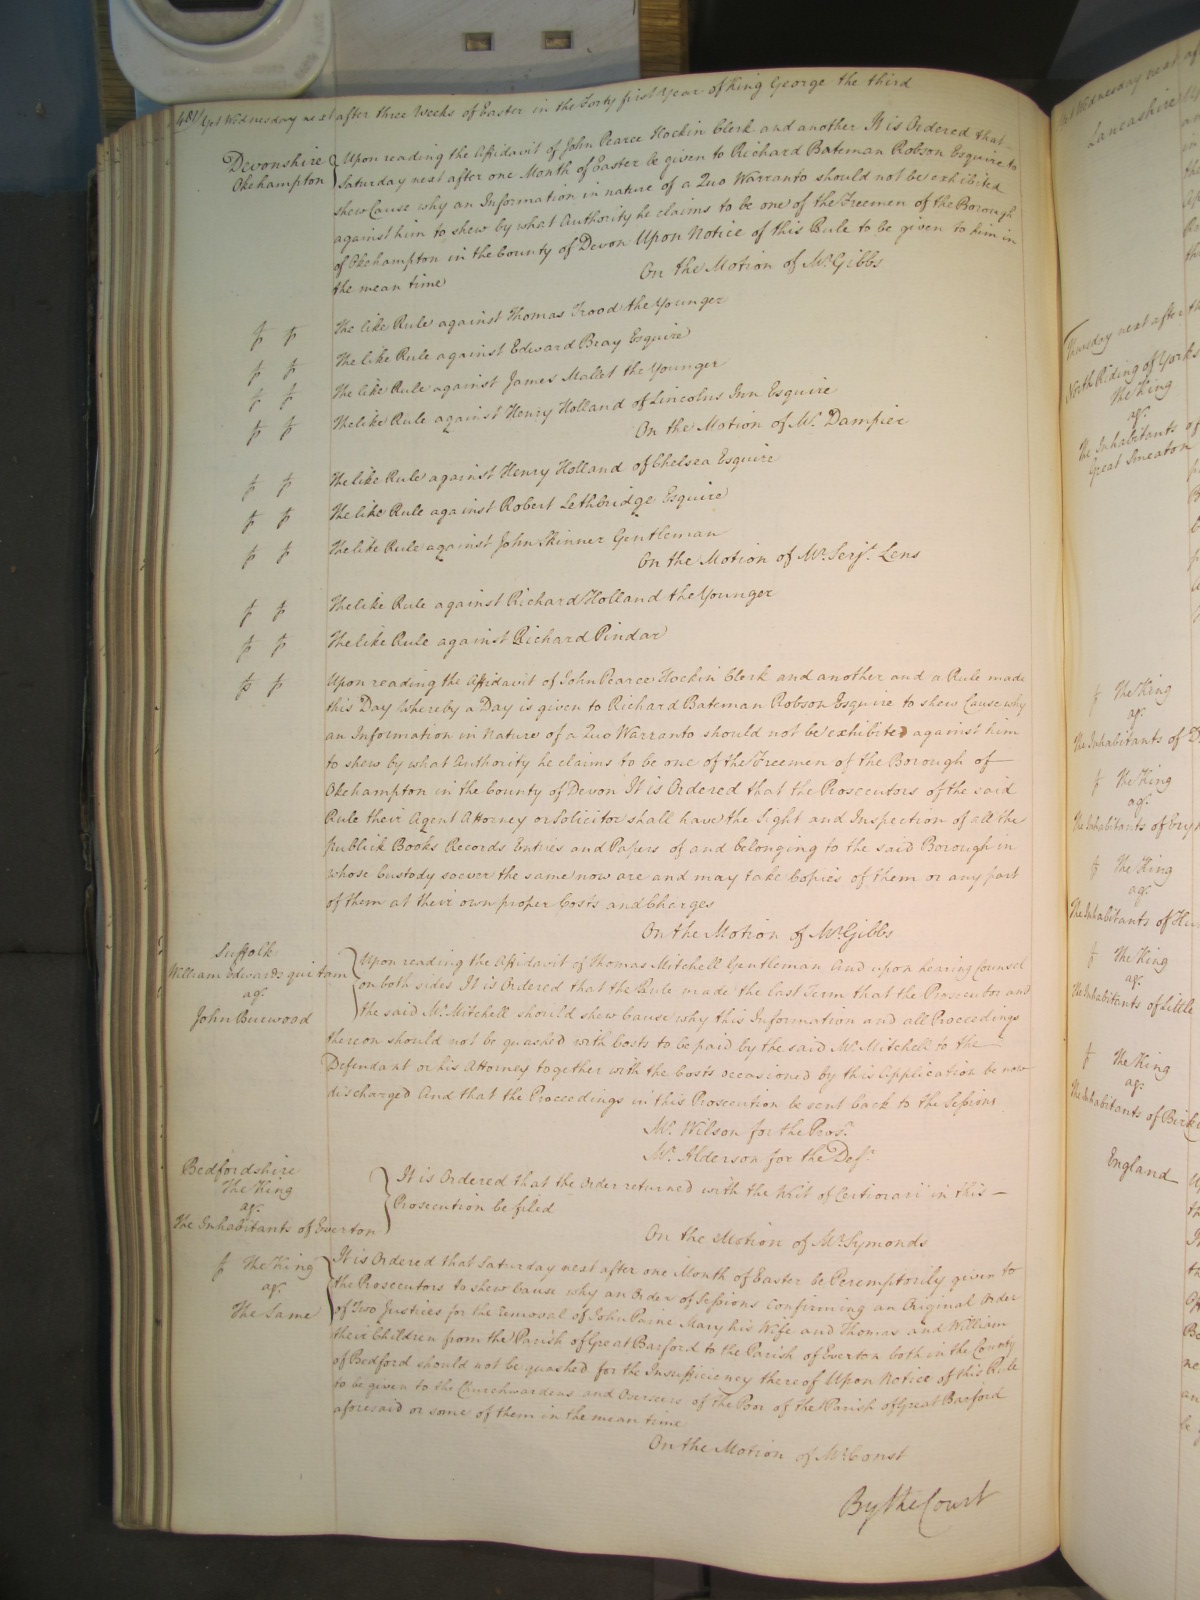 481 Yet Wednesday next after three Weeks of Easter in the Forty first Year of King George the third
Devonshire
Okehampton
Upon reading the Affidavit of John Pearce Hockin Clerk and another It is Ordered that
Saturday next after one Month of Easter be given to Richard Bateman Robson Esquire to
shew Cause why an Information in nature of a Quo Warranto should not be exhibited
against him to shew by what Authority he claims to be one of the Freemen of the Borough
of Okehampton in the County of Devon Upon Notice of this Rule to be given to him in
the mean time
On the Motion of Mr. Gibbs
The like Rule against Thomas Trood the Younger
The like Rule against Edward Bray Esquire
The like Rule against James Mallet the Younger
The like Rule against Henry Holland of Lincolns Inn Esquire
On the Motion of Mr. Dampier
The like Rule against Henry Holland of Chelsea Esquire
The like Rule against Robert Lethbridge Esquire
The like Rule against John Skinner Gentleman
On the Motion of Mr. Serjt. Lens
The like Rule against Richard Holland the Younger
The like Rule against Richard Pindar
Upon reading the Affidavit of John Pearce Hockin Clerk and another and a Rule made
this Day whereby a Day is given to Richard Bateman Robson Esquire to shew Cause why
an Information in Nature of a Quo Warranto should not be exhibited against him
to shew by what Authority he claims to be one of the Freemen of the Borough of
Okehampton in the County of Devon It is Ordered that the Prosecutors of the said
Rule their Agent Attorney or Solicitor shall have the Sight and Inspection of all the
publick Books Records Entries and Papers of and belonging to the said Borough in
whose Custody soever the same now are and may take Copies of them or any part
of them at their own proper Costs and Charges
On the Motion of Mr. Gibbs
Suffolk
William Edwards qui tam
agt.
John Burwood
Upon reading the Affidavit of Thomas Mitchell Gentleman And upon hearing Counsel
on both sides It is Ordered that the Rule made the last Term that the Prosecutor and
the said Mr. Mitchell should shew Cause why this Information and all Proceedings
thereon should not be quashed with Costs to be paid by the said Mr. Mitchell to the
Defendant or his Attorney together with the Costs occasioned by this Application be now
discharged And that the Proceedings in this Prosecution be sent back to the Sessions
Mr. Wilson for the Pros.
Mr. Alderson for the Def.
Bedfordshire
The King
agt.
The Inhabitants of Everton
It is Ordered that the Order returned with the Writ of Certiorari in this
Prosecution be filed
On the Motion of Mr. Symonds
The King
agt.
The Same
It is Ordered that Saturday next after one Month of Easter be Peremptorily given to
the Prosecutors to shew Cause why an Order of Sessions Confirming an Original Order
of Two Justices for the removal of John Paine Mary his Wife and Thomas and William
their Children from the Parish of Great Barford to the Parish of Everton both in the County
of Bedford should not be quashed for the Insufficiency thereof Upon Notice of this Rule
to be given to the Churchwardens and Overseers of the Poor of the Parish of Great Barford
aforesaid or some of them in the mean time
On the Motion of Mr. Const
By the Court
Wednesday next af
Lancashire
Thursday next after th
North Riding of Yorks
The King
agt.
The Inhabitants of
Great Smeaton
The King
agt.
The Inhabitants of D
The King
agt.
The Inhabitants of
The King
agt.
The Inhabitants of
The King
agt.
The Inhabitants of Little
The King
agt.
The Inhabitants of
England